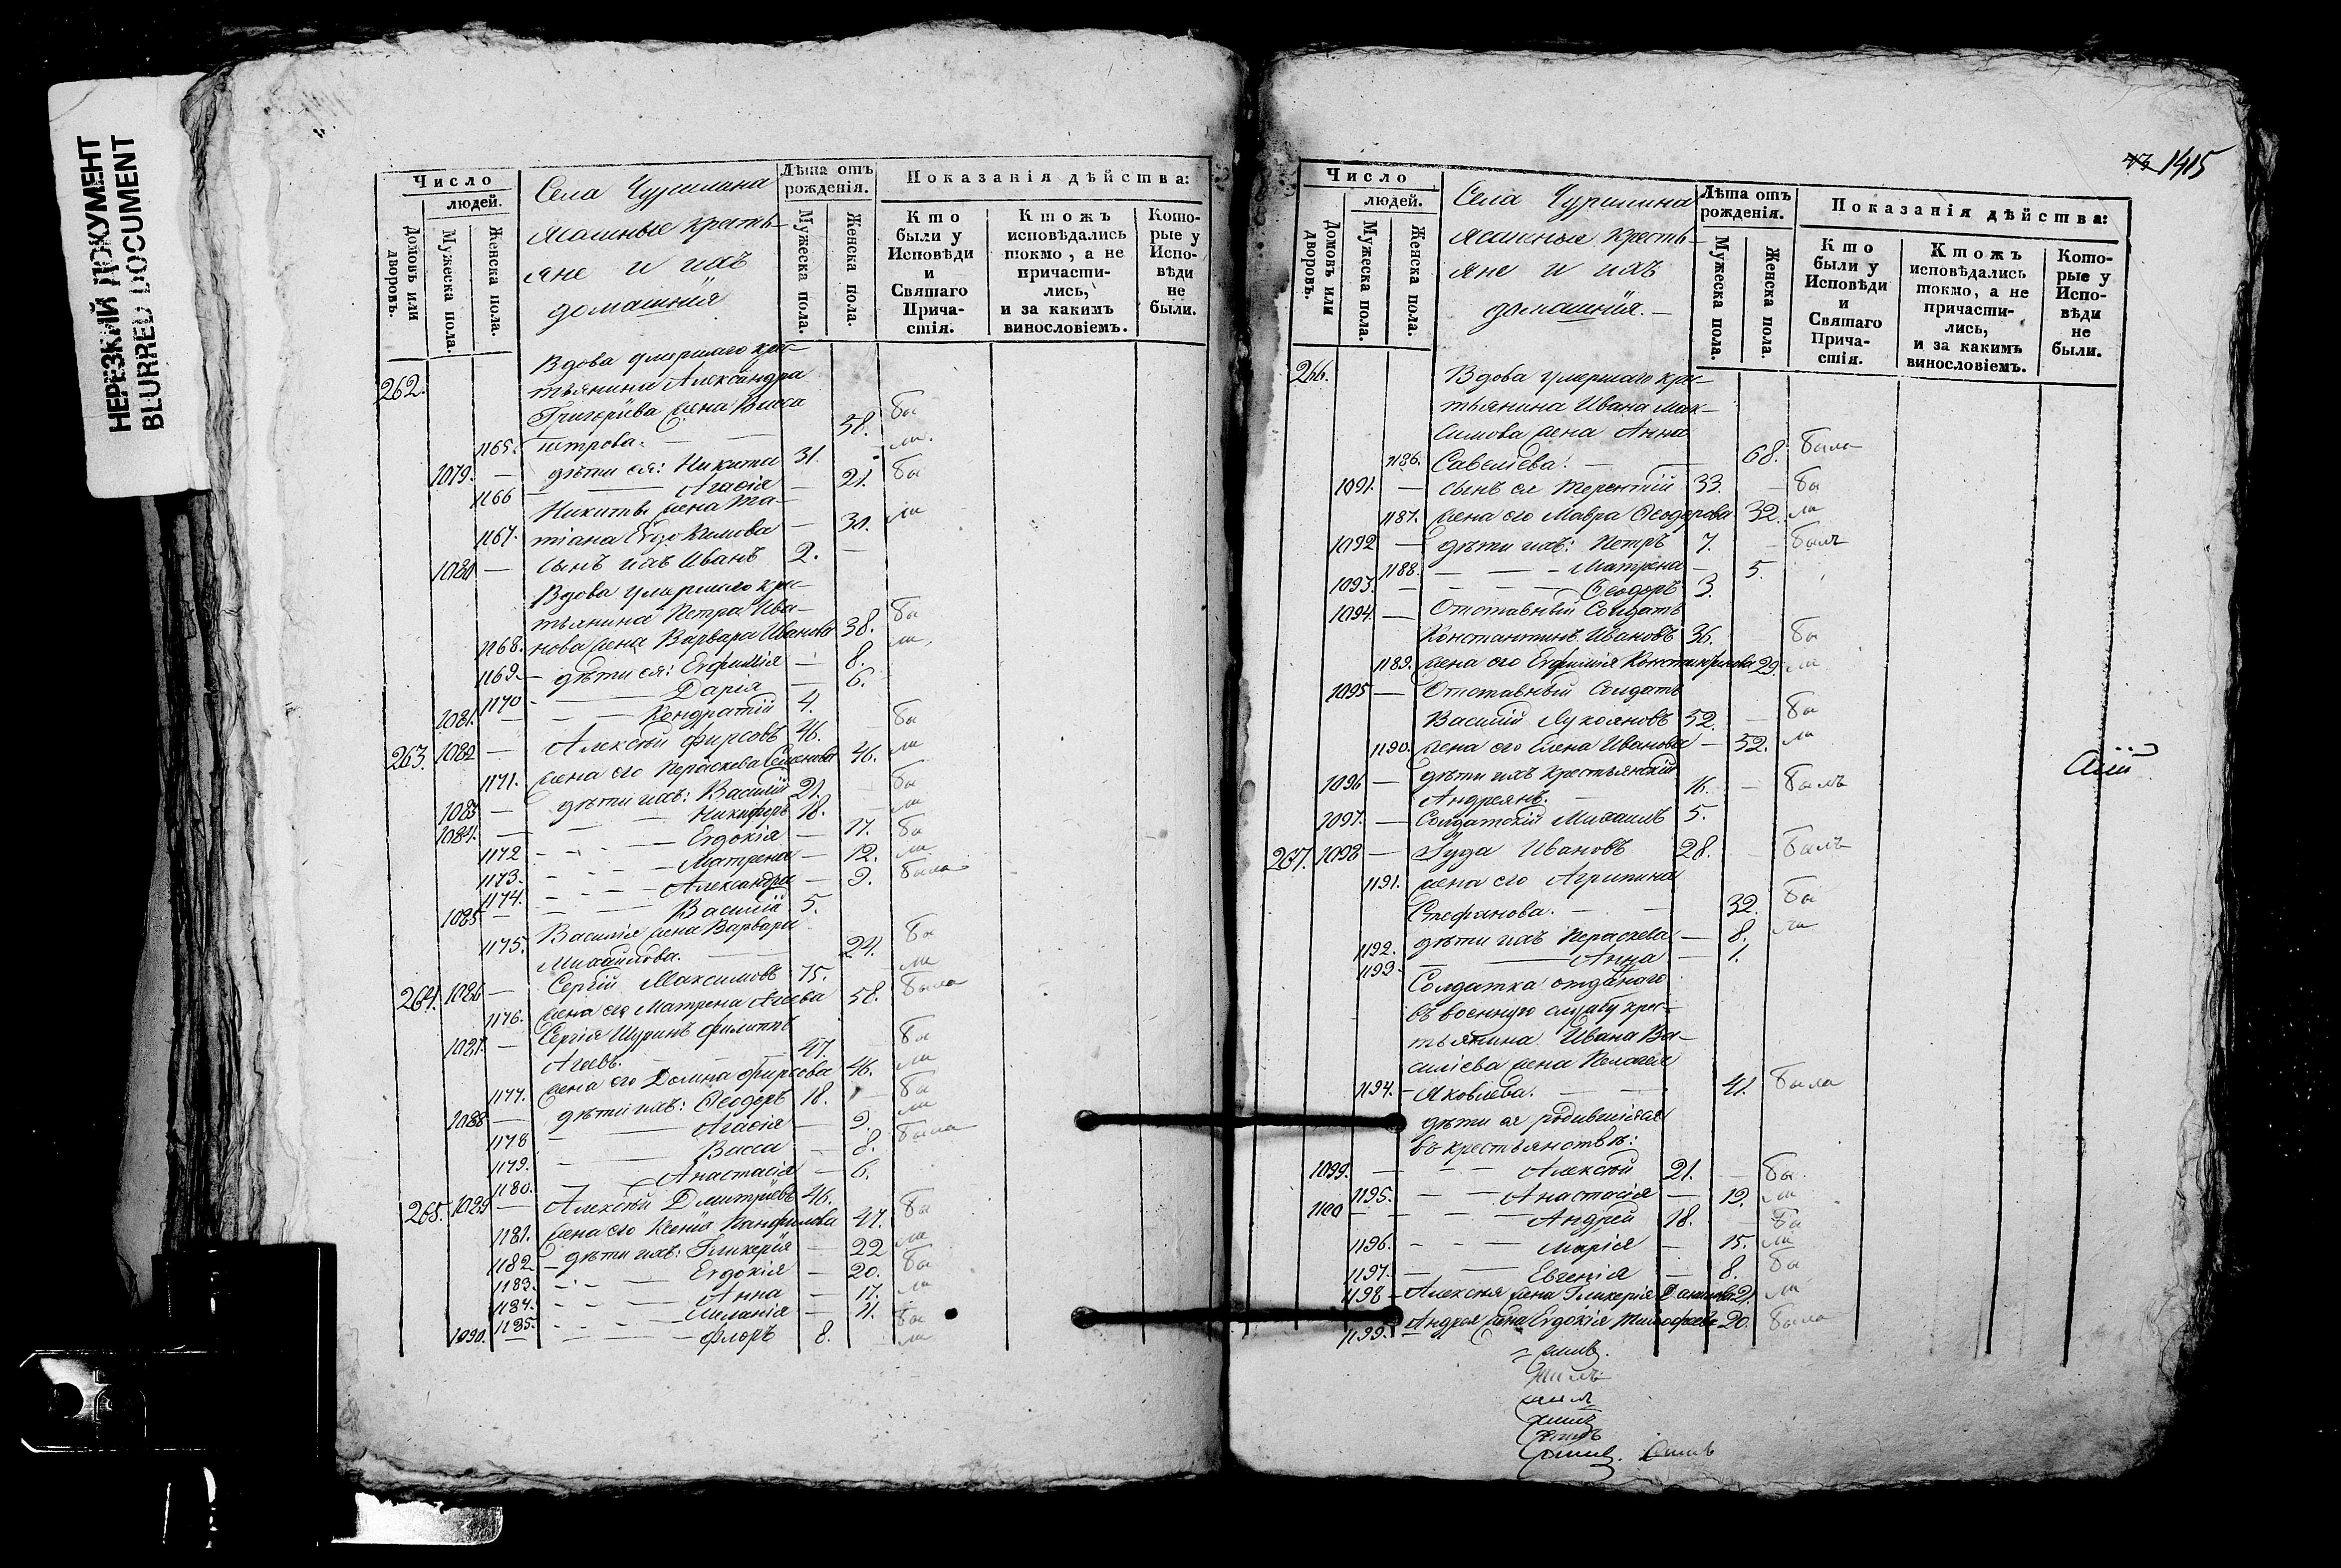 НЕРЕЗКИЙ ДОКУМЕНТ
BLURRED DOCUMENT
Число
людей.
Домовъ или дворовъ.
Мужеска пола.
Женска пола.
Села Чурилина
ясашные кресть-
яне и ихъ
домашнія
Лѣта отъ рожденія.
Мужеска пола.
Женска пола.
Показанія дѣйства:
Кто были у Исповѣди и Святаго Прича-стія.
Ктожъ исповѣдались токмо, а не причасти-лись, и за какимъ винословіемъ.
Кото-рые у Испо-вѣди не были.
262. Вдова умершаго кре-
стьянина Александра
Григорьева жена Васса
1165. петрова. — 58. бы
1079. — дѣти ея: Никита 31. ли.
1166 — Агафія — 21. бы
Никиты жена Та-
1167. тіана Евдокимова — 30. ли
1080 — сынъ ихъ Иванъ 2. —
Вдова умершаго кре-
стьянина Петра Ива-
1168. нова жена Варвара Иванова 38. бы
1169. — дѣти ея: Евфимія — 8. ли
1170 — Дарія — 6.
1081. — Кондратій 4.
263. 1082 — Алексѣй Фирсовъ 46. — бы
1171. жена его Параскева Семенова 46. ли
1083 — дѣти ихъ: Василій 21. — бы
1084. — Никифоръ 18. — ли
1172 — Евдокія — 17. бы
1173. — Матрена — 12. ли
1174. — Александра — 9. была
1085 — Василій 5.
1175. Василія жена Варвара
Михайлова. — 24. бы
264. 1086 — Сергій Максимовъ 75. ли
1176. жена его Матрена Агеева 58. была
1087. — Сергія Шуринъ филиппъ
Агеевъ. — 47. бы
1177. жена его Домна Фирсова 46. ли
1088 — дѣти ихъ: Ѳеодоръ 18. — бы
1178 — Агафія — 9. ли
1179. — Васса — 8. была
1180. — Анастасія — 6.
265. 1089 — Алексѣй Дмитріевъ 46.
1181. жена его Ксенія Панфилова 47. бы
1182 — дѣти ихъ: Гликерія — 22 ли
1183. — Евдокія — 20. бы
1184. — Анна — 17. ли
1185. — Меланія — 11. бы
1090. — Флоръ 8. — ли
1415
Число
людей.
Домовъ или дворовъ.
Мужеска пола.
Женска пола.
Села Чурилина
ясашные кресть-
яне и ихъ
домашнія. —
Лѣта отъ рожденія.
Мужеска пола.
Женска пола.
Показанія дѣйства:
Кто были у Исповѣди и Святаго Прича-стія.
Ктожъ исповѣдались токмо, а не причасти-лись, и за какимъ винословіемъ.
Кото-рые у Испо-вѣди не были.
266. Вдова умершаго кре-
стьянина Ивана Мак-
симова жена Анна
1186. Савельева. — 68. была
1091. — сынъ ея Терентій 33. — бы
1187. жена его Мавра Ѳеодорова 32. ли
1092 — дѣти ихъ: Петръ 7. — былъ
1188. — Матрена — 5.
1093. — Ѳеодоръ 3.
1094. — Отставный Солдатъ
Константинъ Ивановъ 36. — бы
1189. жена его Евфимія Константинова 29. ли
1095 — Отставный Солдатъ
Василій Лукояновъ 52. — бы
1190. жена его Елена Иванова — 52. ли
1096 — дѣти ихъ крестьянскій
Андреянъ. — 16. — былъ
1097. — Солдатскій Михаилъ 5.
267. 1098 — Іуда Ивановъ 28. былъ
1191. жена его Агрипина
Стефанова. — 32. бы
1192. дѣти ихъ Параскева — 8. ли
1193. — Анна — 1.
Солдатка отданаго
въ военную службу крес-
тьянина Ивана Ва-
силіева жена Пелагея
1194. — Яковлева. — 41. была
дѣти ея родившіяся
въ крестьянствѣ:
1099. — Алексѣй 21. — бы
1195. — Анастасія — 19. ли
1100 — Андрей 18. — бы
1196. — Марія — 15. ли
1197. — Евгенія — 8. бы
1198 — Алексѣя жена Гликерія 21. ли
1199. — Андрея жена Евдокія Тимофеева 20. была